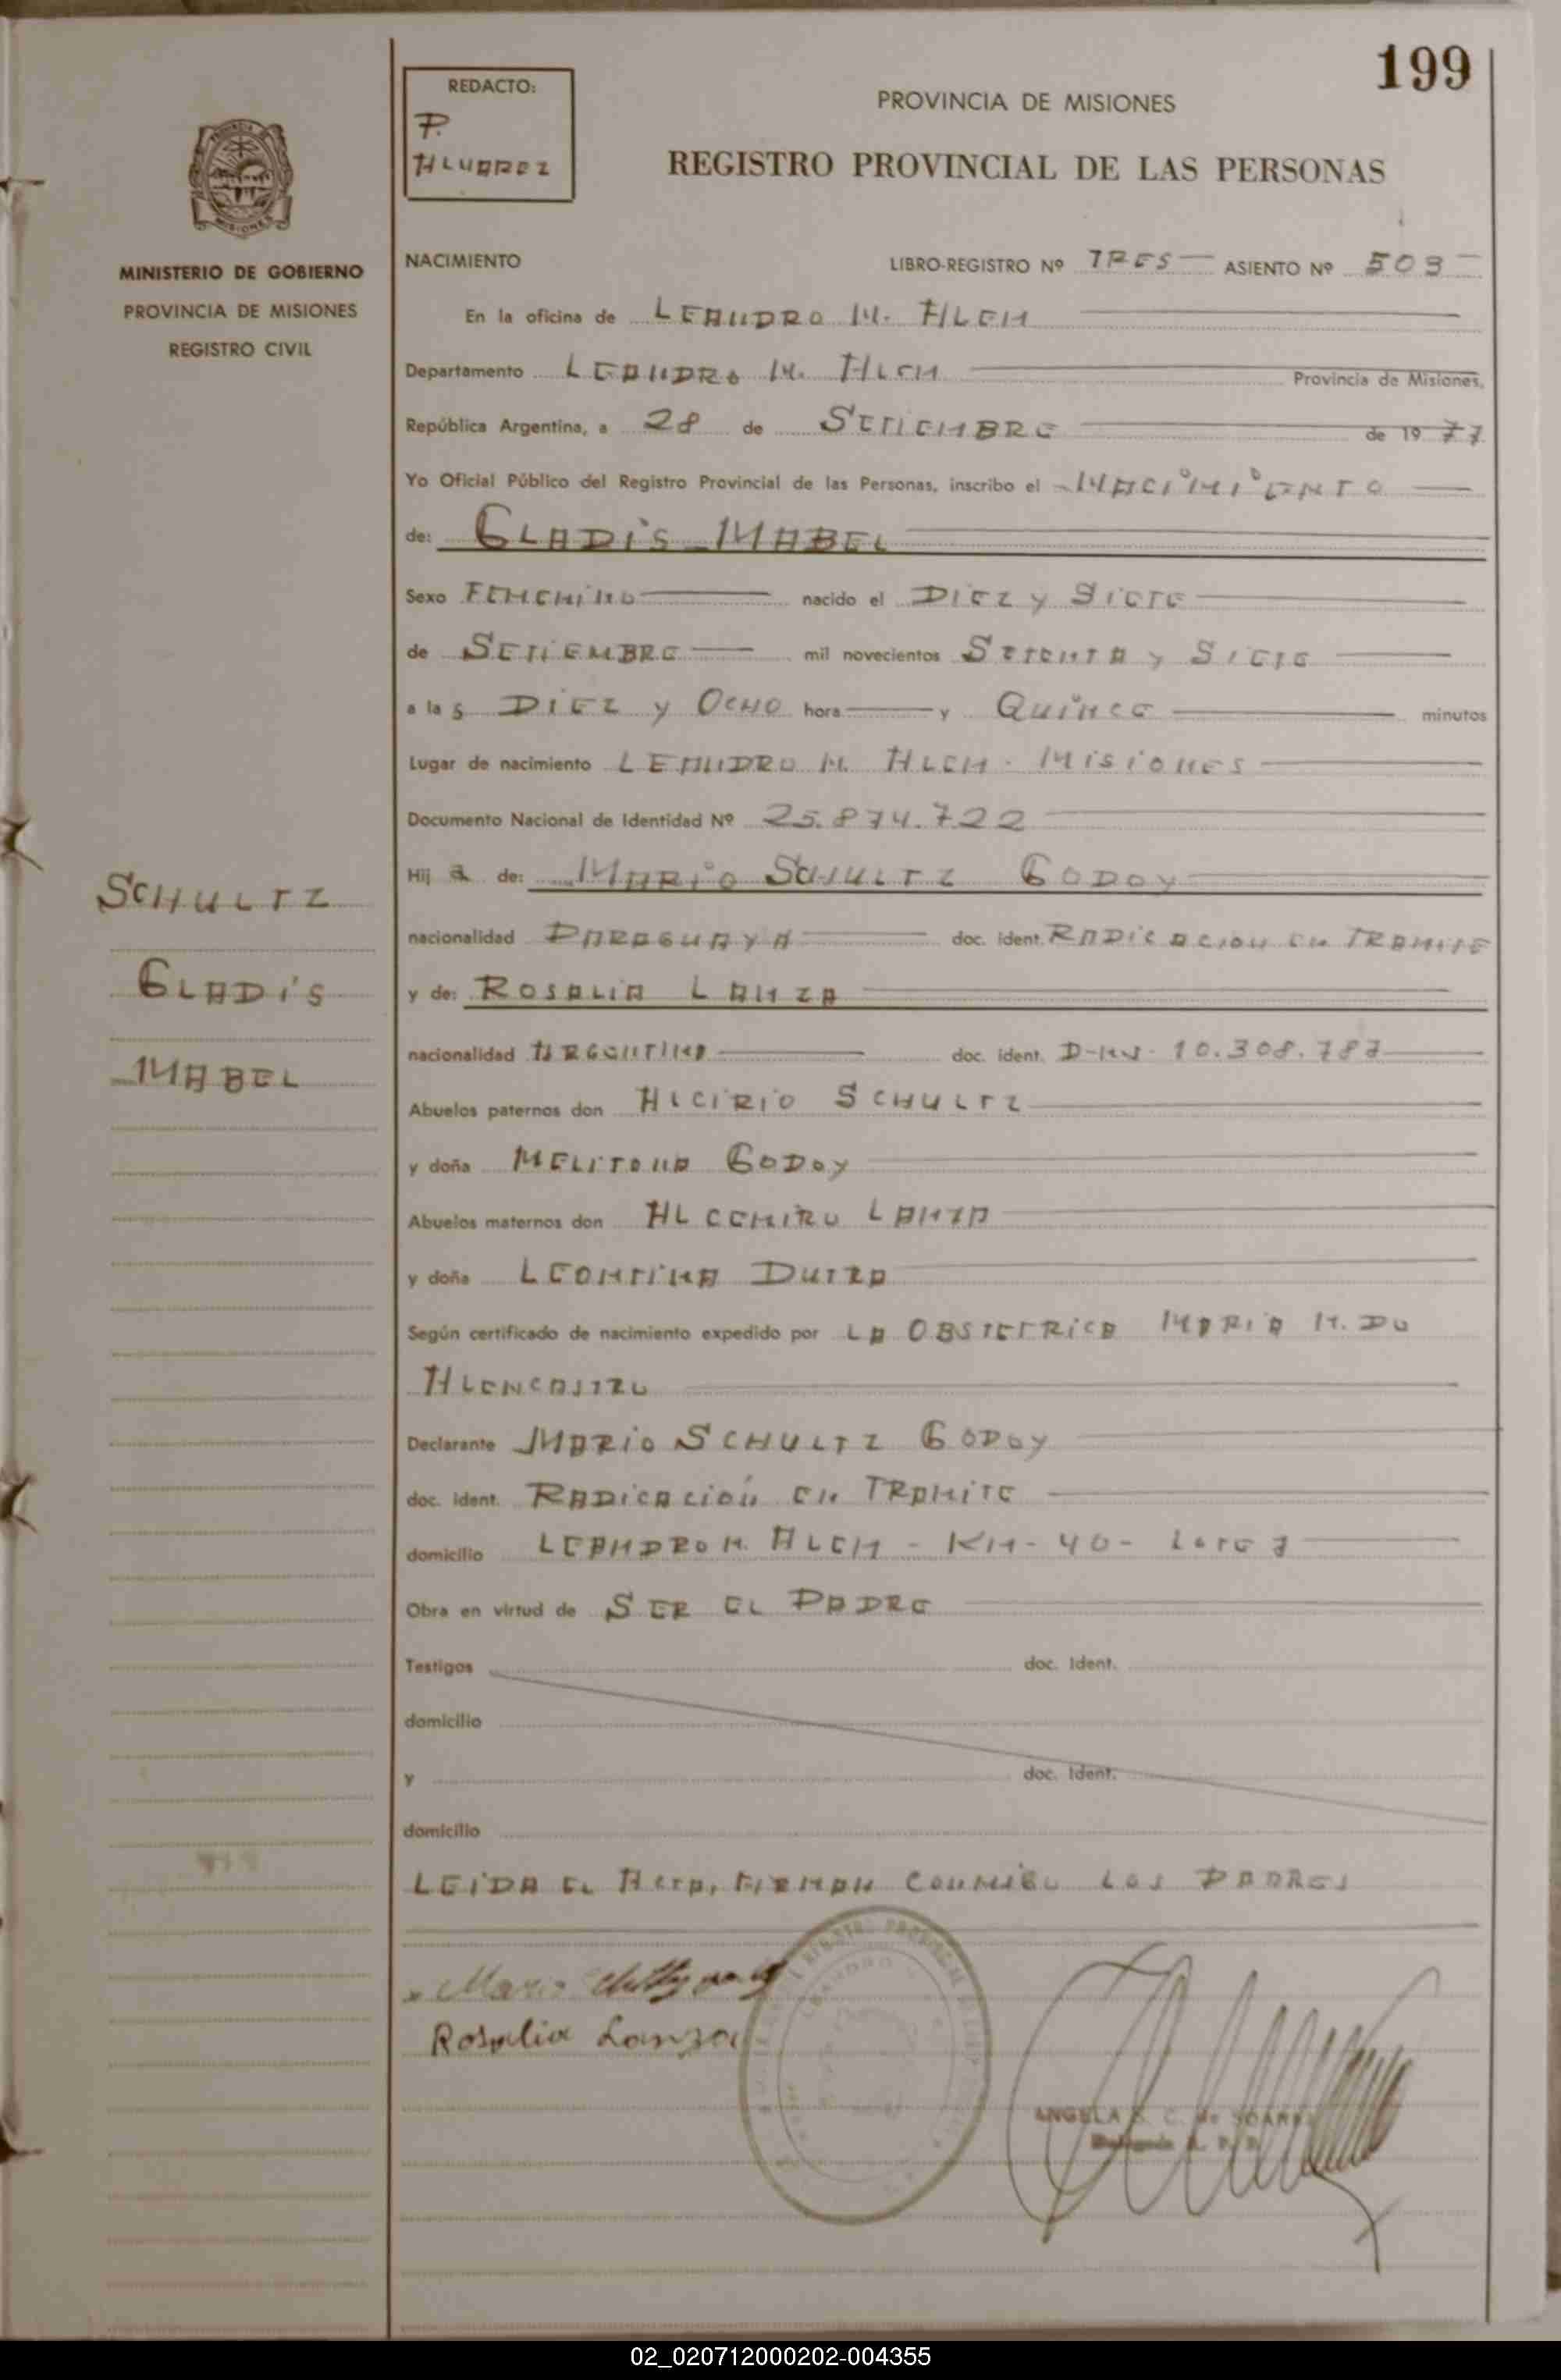 199
REDACTO:
P.
ALVAREZ
PROVINCIA DE MISIONES
REGISTRO PROVINCIAL DE LAS PERSONAS
MINISTERIO DE GOBIERNO
PROVINCIA DE MISIONES
REGISTRO CIVIL
SCHULTZ
GLADIS
MABEL
NACIMIENTO LIBRO-REGISTRO Nº TRES ASIENTO Nº 509
En la oficina de LEANDRO N. ALEM
Departamento LEANDRO N. ALEM Provincia de Misiones,
República Argentina, a 28 de SETIEMBRE de 19 77
Yo Oficial Público del Registro Provincial de las Personas, inscribo el NACIMIENTO
de: GLADIS MABEL
Sexo FEMENINO nacido el DIEZ y SIETE
de SETIEMBRE mil novecientos SETENTA y SIETE
a la s DIEZ y OCHO hora y QUINCE minutos
Lugar de nacimiento LEANDRO N. ALEM - MISIONES
Documento Nacional de Identidad Nº 25.874.722
Hij a de: MARIO SCHULTZ GODOY
nacionalidad PARAGUAYA doc. ident. RADICACION EN TRAMITE
y de: ROSALIA LANZA
nacionalidad ARGENTINA doc. ident. D-N-I- 10.308.787
Abuelos paternos don ALCIRIO SCHULTZ
y doña MELITONA GODOY
Abuelos maternos don LANZA
y doña LEONTINA DUTRA
Según certificado de nacimiento expedido por LA OBSTETRICA MARIA M. DE
Declarante MARIO SCHULTZ GODOY
doc. ident. RADICACIÓN EN TRAMITE
domicilio LEANDRO N. ALEM - KM - 40 - LOTE 7
Obra en virtud de SER EL PADRE
Testigos doc. ident.
domicilio
y doc. ident.
domicilio
LEIDA EL ACTA, FIRMAN CONMIGO LOS PADRES
Mario
Rosalia Lanza
ANGELA S. C. de SOARES
02_020712000202-004355